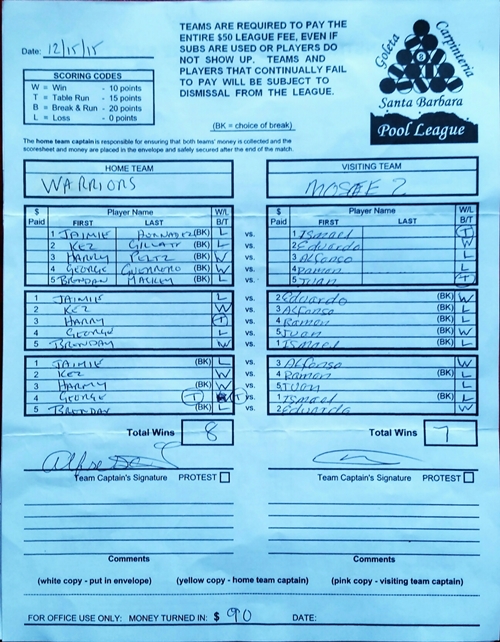 Date: 12/15/15
TEAMS ARE REQUIRED TO PAY THE
ENTIRE $50 LEAGUE FEE, EVEN IF
SUBS ARE USED OR PLAYERS DO
NOT SHOW UP. TEAMS AND
PLAYERS THAT CONTINUALLY FAIL
TO PAY WILL BE SUBJECT TO
DISMISSAL FROM THE LEAGUE.
Goleta
Carpinteria
8
Santa Barbara
Pool League
SCORING CODES
W = Win - 10 points
T = Table Run - 15 points
B = Break & Run - 20 points
L = Loss - 0 points
(BK = choice of break)
The home team captain is responsible for ensuring that both teams' money is collected and the
scoresheet and money are placed in the envelope and safely secured after the end of the match.
HOME TEAM VISITING TEAM
WARRIORS 2
$ Paid Player Name FIRST LAST W/L B/T $ Paid Player Name FIRST LAST W/L B/T
1 JAIMIE (BK) L vs. 1 Ismael T
2 KEZ L vs. 2 Eduardo W
3 HARRY PEREZ (BK) W vs. 3 Alfonso L
4 GEORGE GUERRERO W vs. 4 Ramon L
5 BRENDAN (BK) L vs. 5 Juan T
1 JAIMIE L vs. 2 Eduardo (BK) W
2 KEZ W vs. 3 Alfonso (BK) L
3 HARRY T vs. 4 Ramon (BK) L
4 GEORGE L vs. 5 Juan (BK) W
5 BRENDAN W vs. 1 ISmael (BK) L
1 JAIMIE (BK) L vs. 3 Alfonso W
2 KEZ W vs. 4 Ramon (BK) L
3 HARRY (BK) W vs. 5 Juan L
4 GEORGE T T vs. 1 Ismael (BK) L
5 BRENDAN (BK) L vs. 2 Eduardo W
Total Wins 8 Total Wins 7
Team Captain's Signature PROTEST Team Captain's Signature PROTEST
Comments Comments
(white copy - put in envelope) (yellow copy - home team captain) (pink copy - visiting team captain)
FOR OFFICE USE ONLY: MONEY TURNED IN: $ 90 DATE: